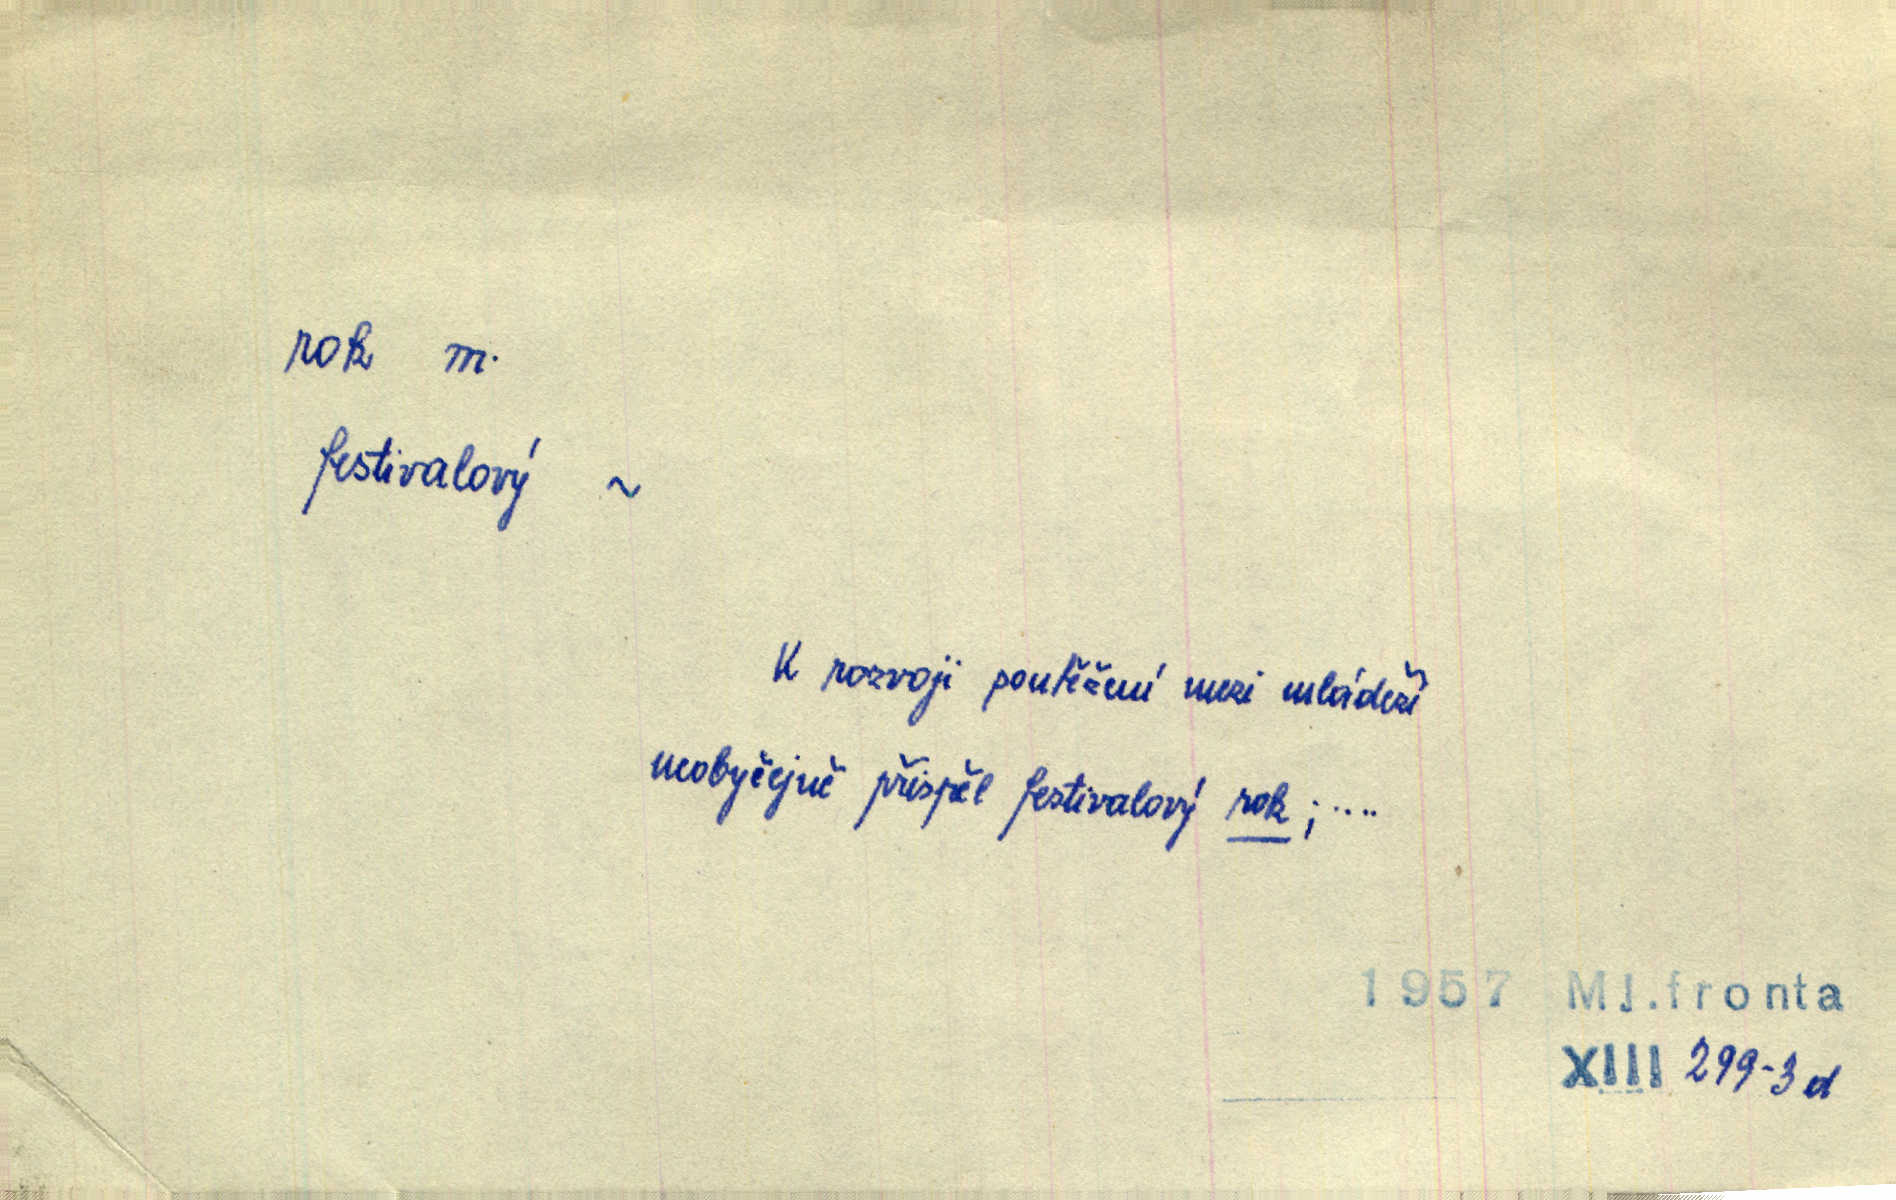 rok m.
festivalový ~
K rozvoji soutěžení mezi mládeží
neobyčejně přispěl festivalový rok; ....
1957 Ml.fronta
XIII 299-3d